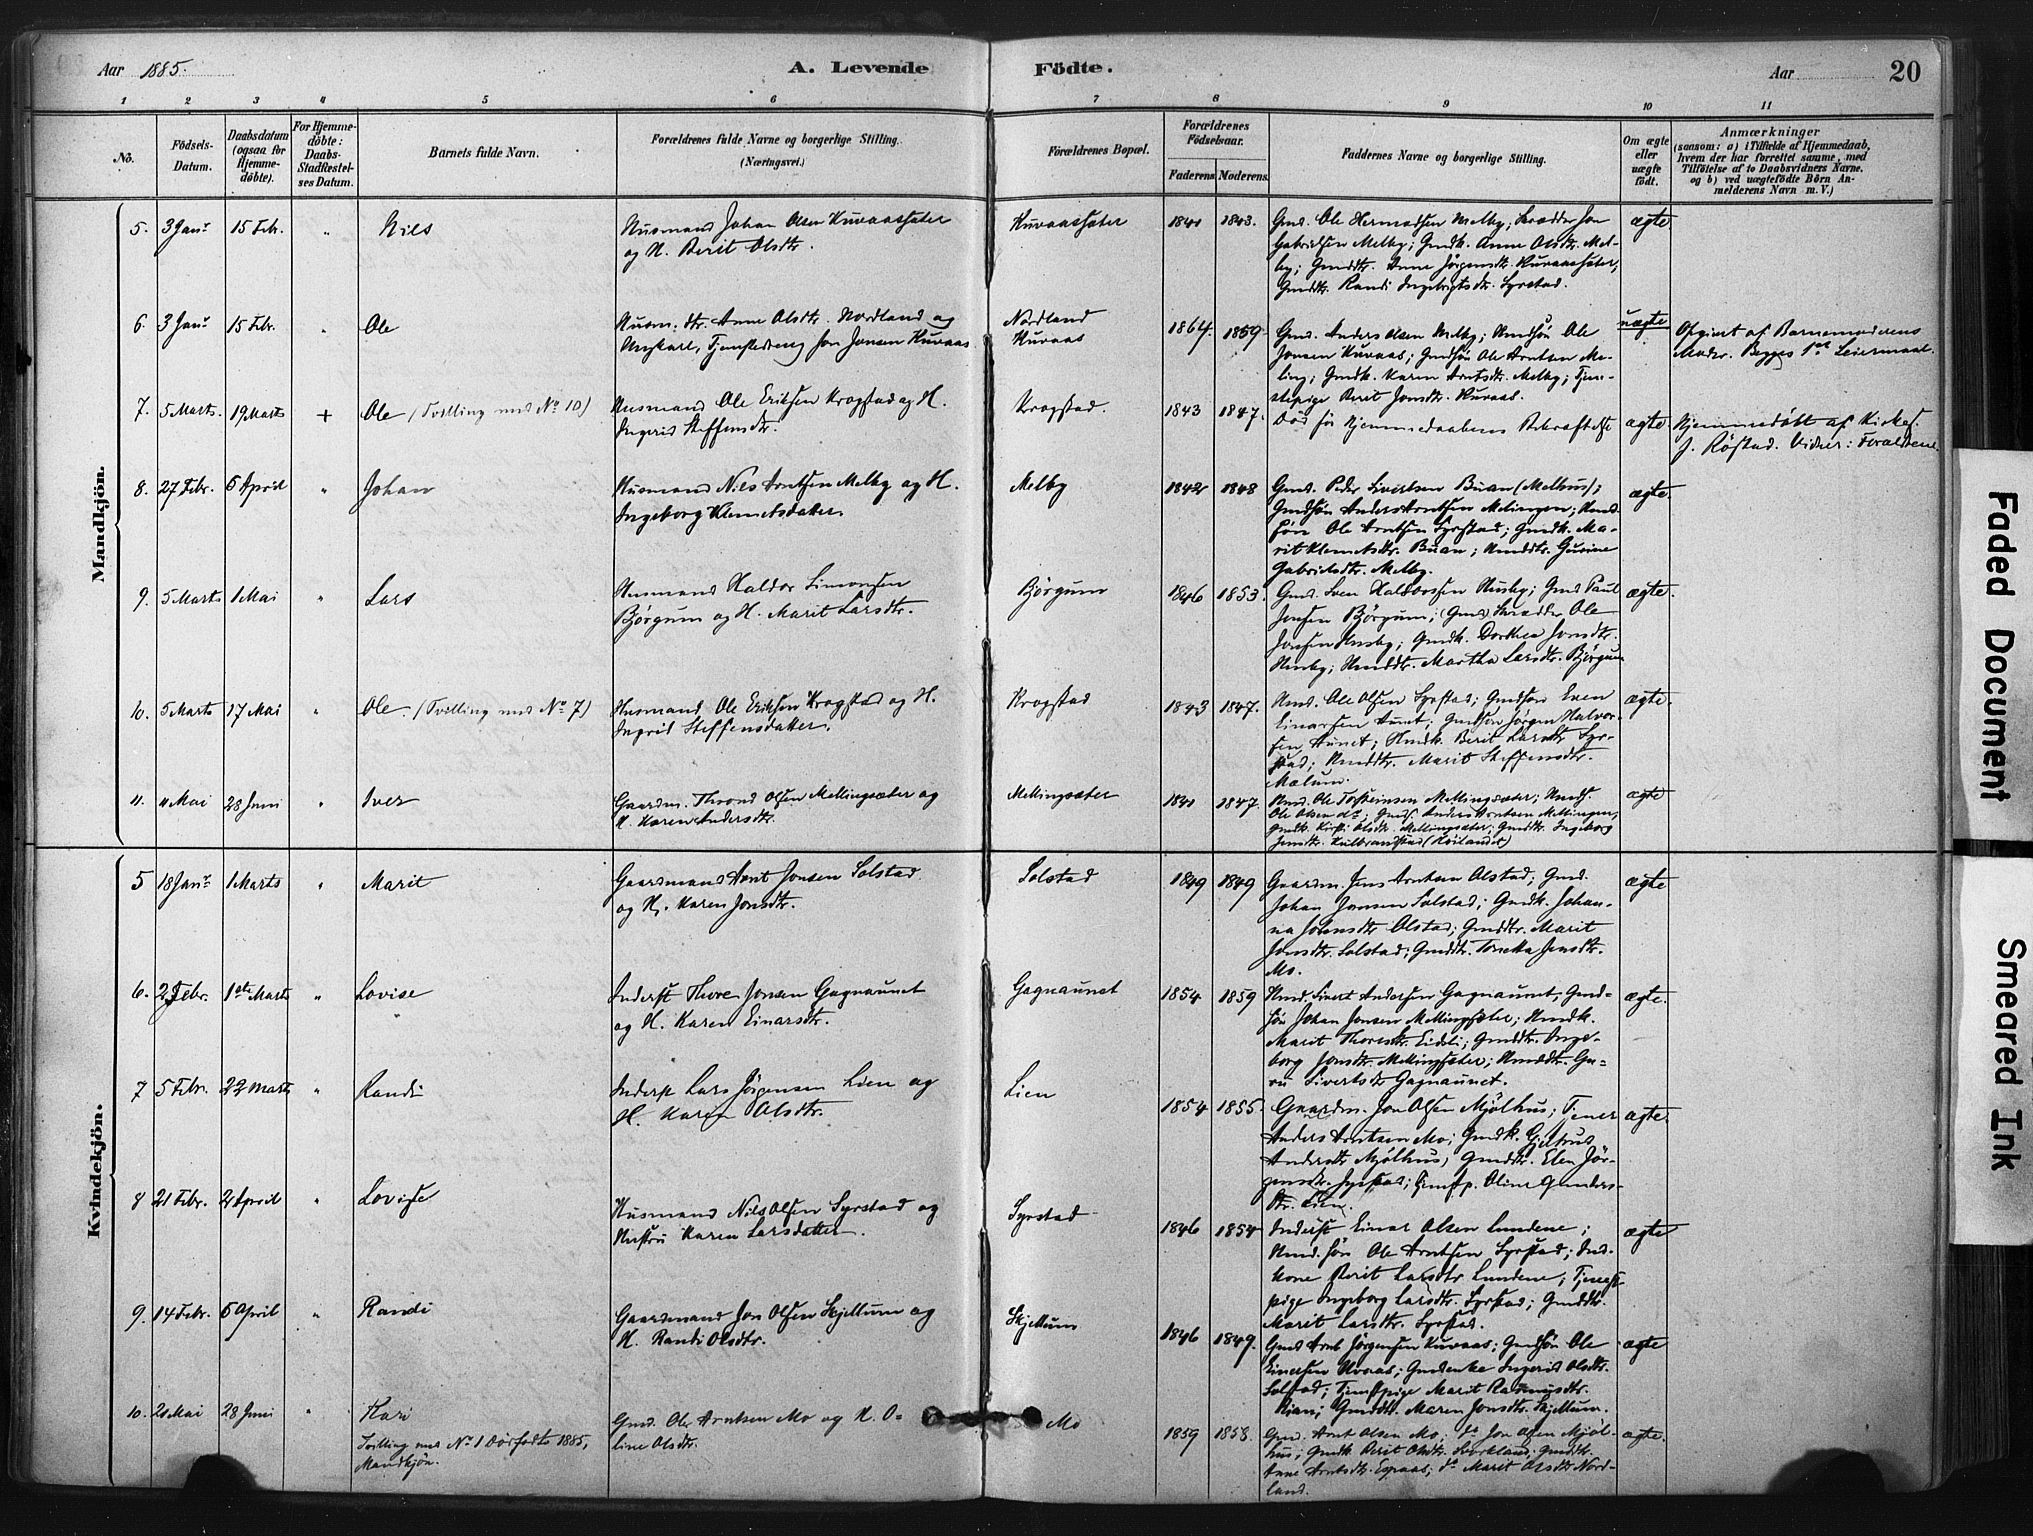 Aar 1885.
A. Levende Födte.
Aar
20
1 2 3 4 5 6 7 8 9 10 11
No.
Födsels-
Datum.
Daabsdatum
(ogsaa for
Hjemme-
döbte).
For Hjemme-
döbte:
Daabs-
Stadfæstel-
ses Datum.
Barnets fulde Navn.
Forældrenes fulde Navne og borgerlige Stilling.
(Næringsvei.)
Forældrenes Bopæl.
Forældrenes
Födselsaar.
Faderens Moderens.
Faddernes Navne og borgerlige Stilling.
Om ægte
eller
uægte
födt.
Anmærkninger
(saasom: a) i Tilfælde af Hjemmedaab,
hvem der har forrettet samme, med
Tilföielse af to Daabsvidners Navne,
og b) ved uægtefödte Börn An-
melderens Navn m. V.)
Mandkjön.
5. 3 Janr 15 Febr. " Nils
Husmand Johan Olsen Kuvaassæter
og H. Berit Olsdtr.
Kuvaassæter
1841 1843.
Gmd. Ole Hermodsen Melby; Skrædder Jon
Gabrielsen Melby; Gmdk. Anne Olsdtr. Mel-
by; Gmddtr. Anne Jørgensdtr. Kuvaassæter;
Gmddtr. Randi Ingebrigtsdtr. Syrstad.
ægte
6. 3 Janr 15 Febr. " Ole
Husm. dtr. Anne Olsdtr. Nordland og
Ungkarl, Tjenestedreng Jon Jonsen Kuvaas
Nordland
Kuvaas
1864. 1859.
Gmd. Anders Olsen Melby; Gmdsøn Ole
Jonsen Kuvaas; Gmdsøn Ole Arntsen Me-
ling; Gmdk. Karen Arntsdtr. Melby; Tjene-
stepige Berit Jonsdtr. Kuvaas.
uægte
Opgivet af Barnemoderens
Moder. Begges 1ste Leiermaal.
7. 5 Marts. 19 Marts + Ole (Tvilling med No 10)
Husmand Ole Eriksen Krogstad og H.
Ingerid Steffensdtr.
Krogstad.
1843 1847.
Død før Hjemmedaabens Bekræftelse
ægte.
Hjemmedøbt af Kirkes.
J. Røstad. Vidner: Forældrene.
8. 27 Febr. 5 April " Johan
Husmand Nils Arntsen Melby og H.
Ingeborg Klemetsdatter.
Melby
1842 1848
Gmd. Peder Sivertsen Buan (Melhus);
Gmdsøn Anders Arntsen Melingen; Hmd
søn Ole Arntsen Syrstad; Gmdk. Ma-
rit Klemetsdtr. Buan; Hmddtr. Gurine
Gabrielsdtr. Melby.
ægte.
9. 5 Marts 1 Mai " Lars
Husmand Haldor Simonsen
Bjørgum og H. Marit Larsdtr.
Bjørgum
1846 1853.
Gmd. Sven Haldorsen Husby; Gmd Paul
Jonsen Bjørgum; Gmd Skrædder Ole
Jonsen Husby; Gmdk. Dorthea Jonsdtr.
Husby; Hmddtr. Martha Larsdtr. Bjørgum
ægte.
10. 5 Marts 17 Mai " Ole. (Tvilling med No 7)
Husmand Ole Eriksen Krogstad og H.
Ingrid Steffensdatter.
Krogstad
1843 1847.
Hmd. Ole Olsen Syrstad; Gmdsøn Even
Einarsen Aunet; Gmdsøn Jørgen Halvor-
sen Aunet; Hmdk. Berit Larsdtr Syr-
stad; Hmddtr. Marit Steffensdtr.
Mælum.
ægte.
11. 4 Mai 28 Juni " Iver
Gaardm. Thrond Olsen Mellingsæter og
H. Karen Andersdtr.
Mellingsæter
1841 1847.
Hmd. Ole Torsteinsen Mellingsæter; Hmds.
Ole Olsen do; Gmds. Anders Arntsen Mellingen;
Gmdk. Kirsti Olsdtr. Mellingsæter; Gmddtr. Ingeborg
Jensdtr. Kulbrandstad (Røilandet)
ægte
Kvindekjön.
5 18 Janr 1 Marts " Marit
Gaardmand Arnt Jonsen Solstad
og H. Karen Jonsdtr.
Solstad
1849 1849
Gaardm. Jens Arntsen Olstad; Gmd.
Johan Jonsen Solstad; Gmdk. Johan-
na Johnsdtr Olstad; Gmddtr. Marit
Jonsdtr. Solstad; Gmddtr. Jonetta Jensdtr.
Mo.
ægte
6. 2 Febr. 1ste Marts " Lovise
Inderst Thore Jonsen Gagnaunet
og H. Karen Einarsdtr.
Gagnaunet
1854 1859
Hmd. Sivert Andersen Gagnaunet; Gmd-
søn Johan Jonsen Mellingsæter; Hmdk.
Marit Thoresdtr. Eidsli; Gmddtr. Inge-
borg Jonsdtr. Mellingsæter; Hmddtr. Gu-
ru Sivertsdtr Gagnaunet.
ægte.
7 5 Febr. 22 Marts " Randi
Inderst Lars Jørgensen Lien og
H. Karen Olsdtr.
Lien
1854 1855.
Gaardm. Jon Olsen Mjølhus; Tjener
Anders Arntsen Mo; Gmdk. Gjertrud
Andersdtr Mjølhus; Gmddtr. Elen Jør-
gensdtr. Syrstad; Tjenestp. Oline Gunders-
dtr. Lien.
ægte.
8 21 Febr. 2 April " Lovise
Husmand Nils Olsen Syrstad og
Hustru Karen Larsdatter.
Syrstad
1846 1854
Inderst Einar Olsen Lundene;
Hmd. søn Ole Arntsen Syrstad; Ind.
kone Berit Larsdtr Lundene; Tjeneste-
pige Ingeborg Larsdtr. Syrstad; Gmddtr.
Marit Larsdtr. Syrstad.
ægte
9. 14 Febr. 5 April " Randi
Gaardmand Jon Olsen Skjellum og
H. Randi Olsdtr.
Skjellum
1846 1849.
Gmd Arnt Jørgensen Kuvaas; Gmdsøn Ole
Einersen Hovaas; Gmdenke Ingerid Olsdtr.
Solstad; Tjenestpige Marit Rasmusdtr.
Rian; Gmddtr. Maren Jonsdtr. Skjellum.
ægte
10. 2 Mai 28 Juni " Kari
Tvilling med No 1 Dødfødte 1885,
Mandkjøn.
Gmd. Ole Arntsen Mo og H. O-
line Olsdtr.
Mo
1859 1858.
Gmd. Arnt Olsen Mo; do Jon Olsen Mjøl-
hus; Gmdk. Berit Olsdtr. Svorkland; Gmddtr.
Anne Arntsdtr. Espaas; do Marit Olsdtr Nord-
land.
ægte.
Faded Document
Smeared Ink